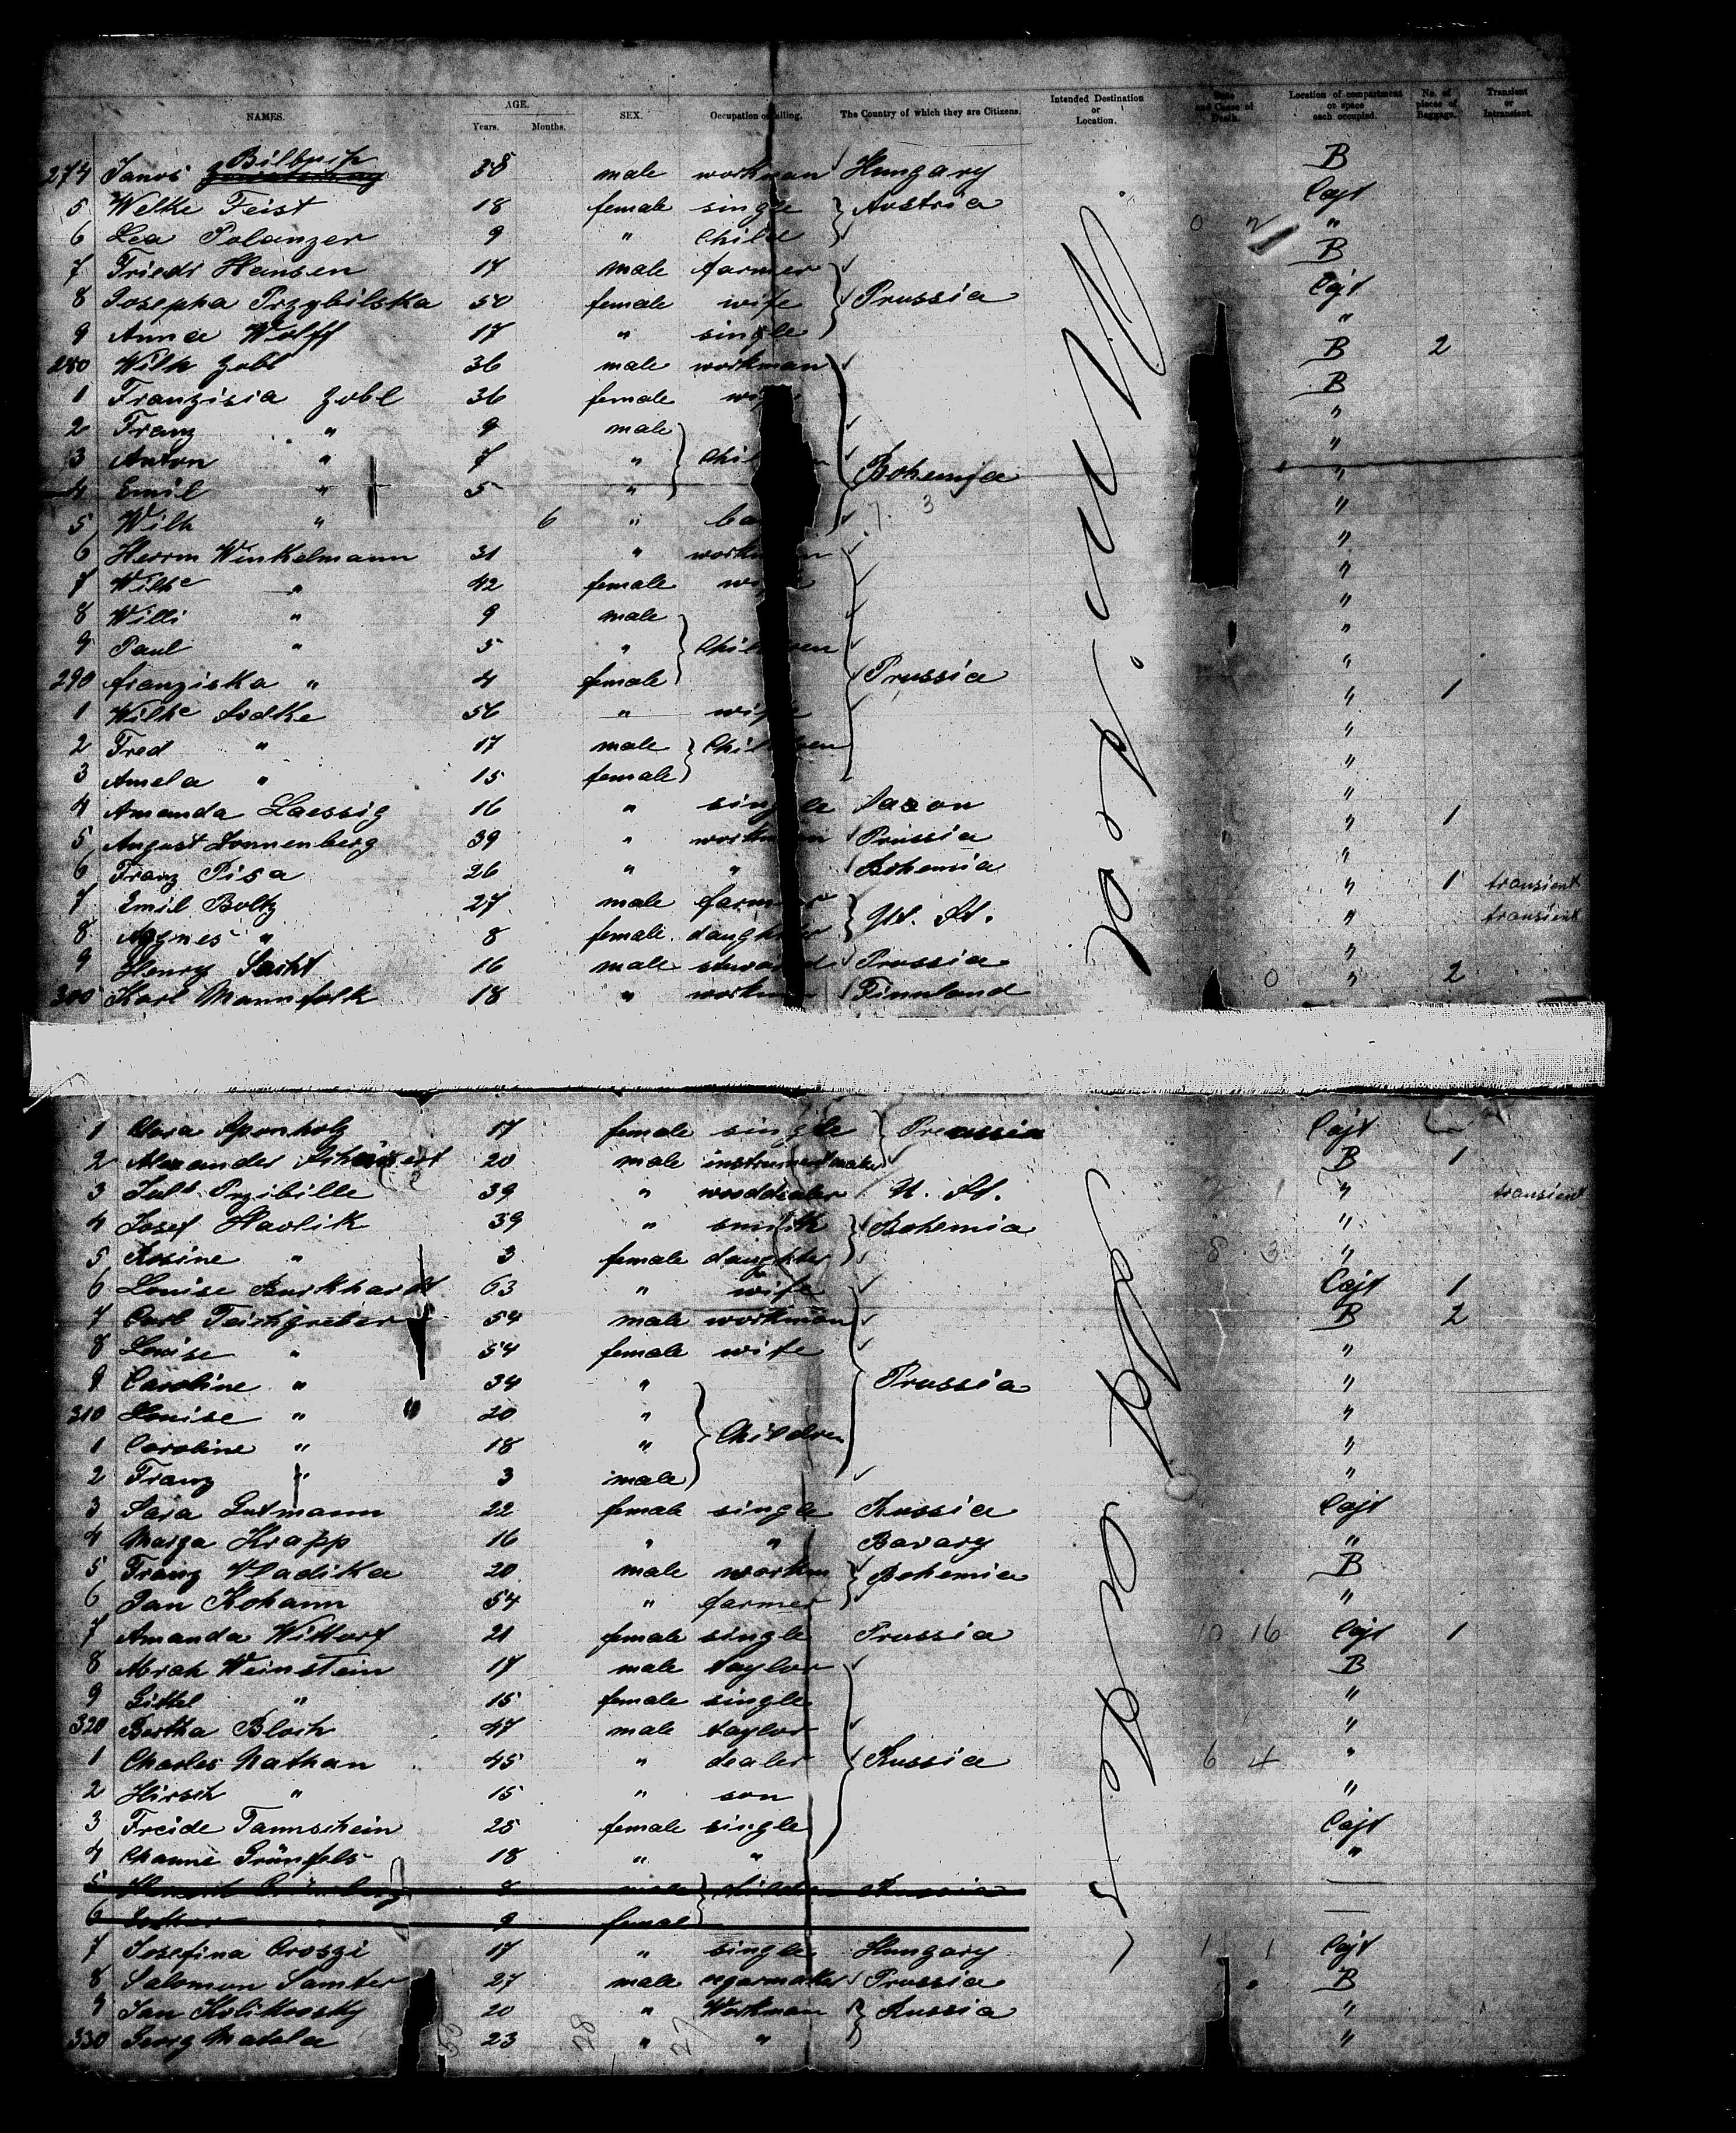 NAMES. AGE. Years. Months. SEX. Occupation or calling. The Country of which they are Citizens. Intended Destination or Location. Date and Cause of Death. Location of compartment or space each occupied. No. of pieces of Baggage. Transient or Intransient.
274 Janos 38 male workman Hungary B
5 Welke Feist 18 female single Austria Cajt
6 Lea Polanzer 9 " Child "
7 Friedr Hansen 17 male farmer B
8 Josepha Przybilska 50 female wife Prussia Cajt
9 Anna Wolff 17 " single "
280 Wilh Zobl 36 male workman B 2
1 Franzisia Zobl 36 female wife B
2 Franz " 9 male "
3 Anton " 7 " Children "
4 Emil " 5 " Bohemia "
5 Wilh " 6 " "
6 Herrm Winkelmann 31 " workman "
7 Wilhe " 42 female wife "
8 Willi " 9 male "
9 Paul " 5 " Children "
290 franziska " 4 female Prussia "
1 Wilhe 56 " wife " 1
2 Fred " 17 male Children "
3 Amela " 15 female "
4 Amanda Laessig 16 " single Saxon "
5 August Sonnenberg 39 " workman Prussia " 1
6 Franz Pisa 26 " " Bohemia "
7 Emil Boltz 27 male farmer " 1 transient
8 Agnes " 8 female daughter " transient
9 Henry 16 male steward Prussia "
300 Karl Mannfolk 18 " workman Finnland " 2
1 Clara Sponholz 17 female single Preussia Cajt
2 Alexander 20 male instrumentmaker B 1
3 Przibille 39 " wooddealer U. St. " transient
4 Josef Havlik 39 " smith Bohemia "
5 Rosine " 3 female daughter "
6 Louise Burkhardt 63 " wife Cajt 1
7 Carl Teichgreber 54 male workman B 2
8 Louise " 54 female wife "
9 Caroline " 34 " Prussia "
310 Louise " 20 " "
1 Caroline " 18 " Children "
2 Franz " 3 male "
3 Sara Gutmann 22 female single Russia Cajt
4 Marga Krapp 16 " " Bavary "
5 Franz Vladika 20 male workm Bohemia B
6 Jan Kohann 54 " farmer "
7 Amanda Wittorf 21 female single Prussia 10 16 Cajt 1
8 Abrah Weinstein 17 male taylor B
9 Gittel " 15 female single "
320 Bertha Bloch 47 male taylor "
1 Charles Nathan 45 " dealer Russia 6 4 "
2 Hirsch " 15 " son "
3 Freide Tannschein 25 female single Cajt
4 Channe Grünfels 18 " " "
5 8 male children Russia
6 " 9 femal
7 Josefina Oroszi 17 " single Hungary 1 1 Cajt
8 Salomon Samter 27 male cigarmaker Prussia B
9 Jan Kolikowsky 20 " Workman Russia "
330 Georg Matala 23 " " "